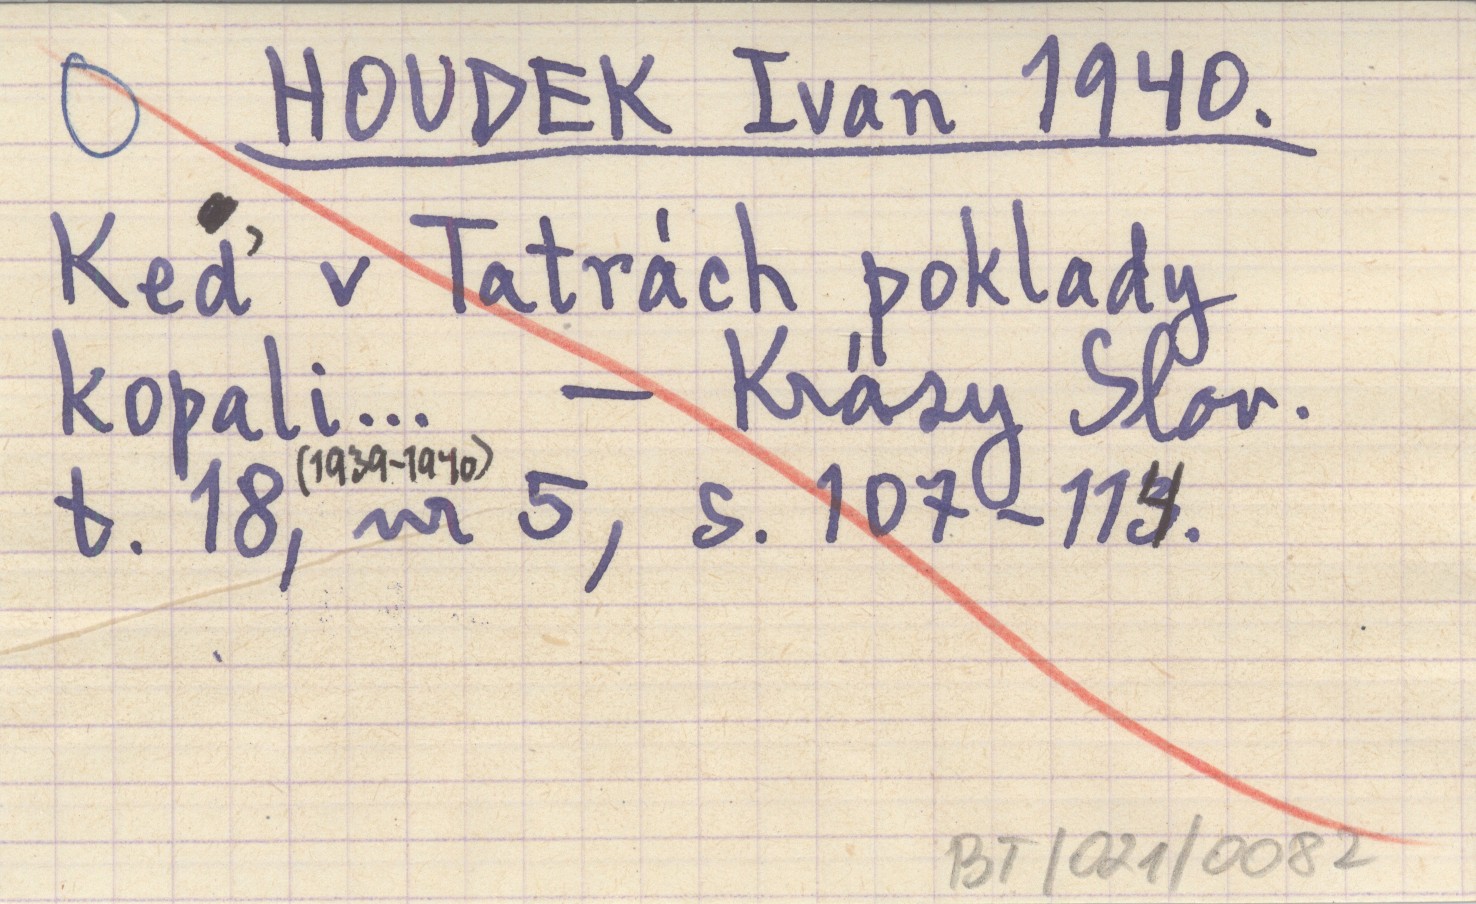 HOUDEK Ivan 1940.
Keď v Tatrách poklady
kopali... – Krásy Slov.
t. 18, (1939-1940) nr 5, s. 107-114.
BT/021/0082